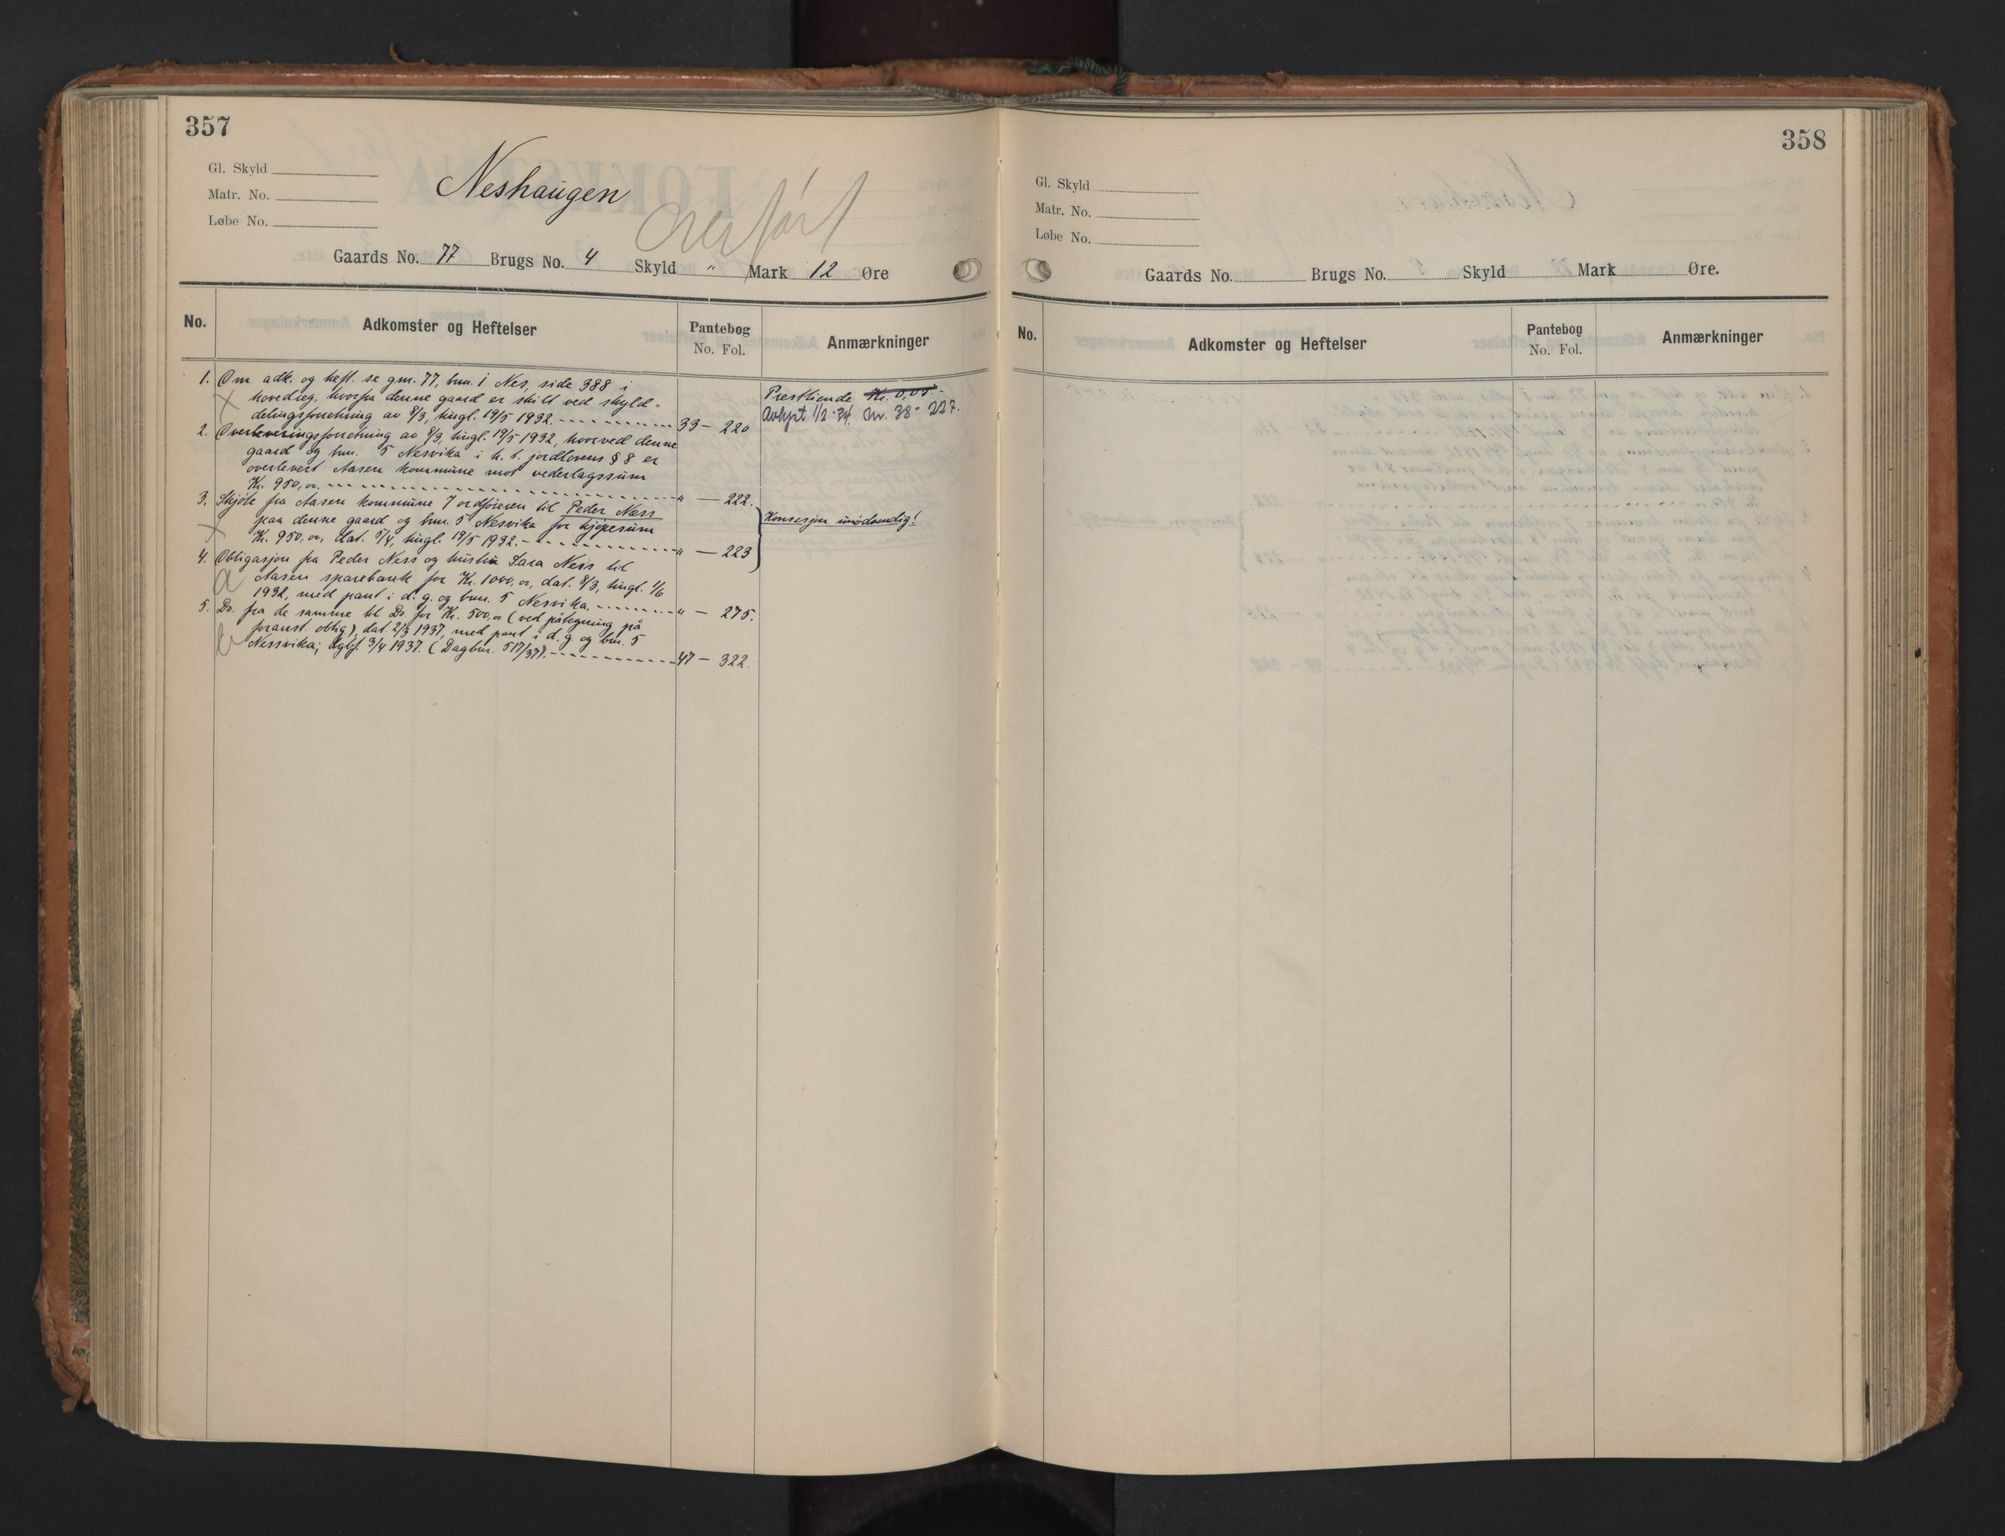 357
Gl. Skyld
Matr. No.
Løbe No.
Neshaugen
Overført
Gaards No. 77 Brugs No. 4 Skyld " Mark 12 Øre
No. Adkomster og Heftelser Pantebog No. Fol. Anmærkninger
1. Om adk. og heft. se gnr. 77, bnr. 1 Nes, side 388 i
hovedreg., hvorfra denne gaard er skilt ved skyld-
delingsforretning av 8/3, tingl. 19/5 1932. 33 – 220
Presttiende Kr. 0,05
Avløst 1/2-34. Nr. 38 - 227.
2. Overleveringsforretning av 8/3, tingl. 19/5 1932, hvorved denne
gaard og bnr. 5 Nesvika i h. t. jordlovens § 8 er
overlevert Aasen kommune mot vederlagssum
Kr. 950,00. " – 222.
3. Skjøte fra Aasen kommune v ordføreren til Peder Næss
paa denne gaard og bnr. 5 Nesvika for kjøpesum
Kr. 950,00, dat. 5/4, tingl. 19/5 1932. " – 223
Konsesjon unødvendig!
4. Obligasjon fra Peder Ness og hustru Sara Ness til
Aasen sparebank for Kr. 1000,00, dat. 8/3, tingl. 1/6
1932, med pant i d. g. og bnr. 5 Nesvika. " – 275.
5. Do. fra de samme til Do. for Kr. 500,00 (ved påtegning på
foranst. oblig), dat. 2/3 1937, med pant i d. g. og bnr. 5
Nessvika; tglf. 3/4 1937. (Dagbnr. 517/37). 47 – 322.
358
Gl. Skyld
Matr. No.
Løbe No.
Gaards No. Brugs No. Skyld Mark Øre.
No. Adkomster og Heftelser Pantebog No. Fol. Anmærkninger